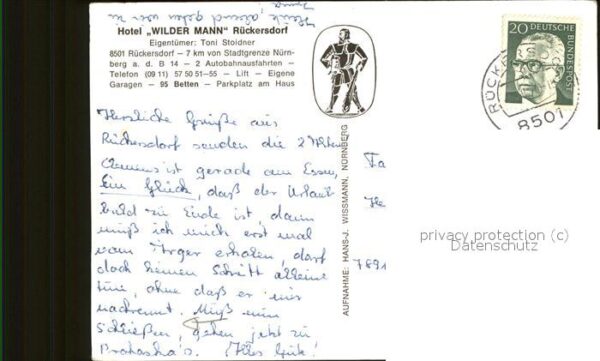 Heute abend gehen wir zu
Hotel „WILDER MANN" Rückersdorf
Eigentümer: Toni Stoidner
8501 Rückersdorf – 7 km von Stadtgrenze Nürn-
berg a. d. B 14 – 2 Autobahnausfahrten –
Telefon (09 11) 57 50 51–55 – Lift – Eigene
Garagen – 95 Betten – Parkplatz am Haus
Herzliche Grüße aus
Rückersdorf senden die 2
ist gerade am Essen,
Ein Glück, daß der Urlaub
bald zu Ende ist, dann
muß ich mich erst mal
vom Ärger erholen, darf
doch keinen Schritt alleine
tun, ohne daß er mir
nachrennt. Muß nun
schließen, gehen jetzt zu
Alles Gute!
AUFNAHME: HANS-J. WISSMANN, NÜRNBERG
20
DEUTSCHE
BUNDESPOST
RÜCKERSDORF
8501
Fa
He
7891
privacy protection (c)
Datenschutz